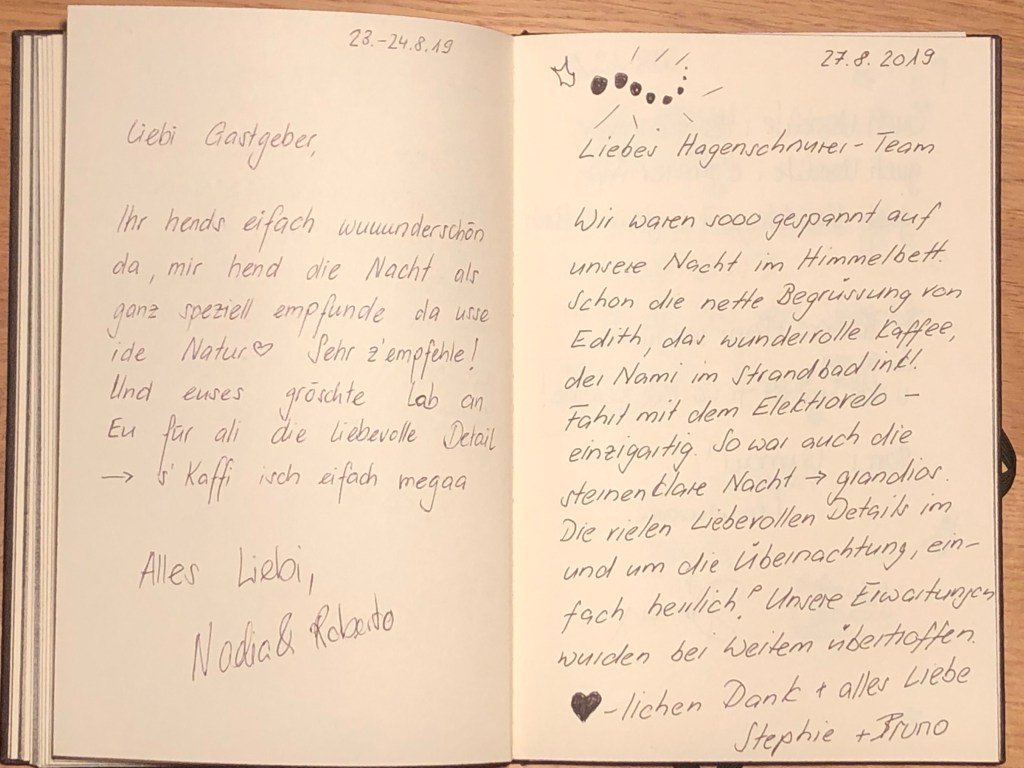 23.-24.8.19
Liebi Gastgeber,
Ihr hends eifach wuuunderschön
da, mir hend die Nacht als
ganz speziell empfunde da usse
ide Natur♡ Sehr z'empfehle!
Und euses gröschte Lob an
Eu für ali die liebevolle Detail
→ s' Kaffi isch eifach megaa
Alles Liebi,
Nadia & Roberto
27.8.2019
Liebes Hagenschnurer-Team
Wir waren sooo gespannt auf
unsere Nacht im Himmelbett.
Schon die nette Begrüssung von
Edith, das wundervolle Kaffee,
der Nami im Strandbad inkl.
Fahrt mit dem Elektrovelo –
einzigartig. So war auch die
sternenklare Nacht → grandios.
Die vielen liebevollen Details im
und um die Übernachtung, ein-
fach herrlich! Unsere Erwartungen
wurden bei Weitem übertroffen.
♥-lichen Dank + alles Liebe
Stephie + Bruno